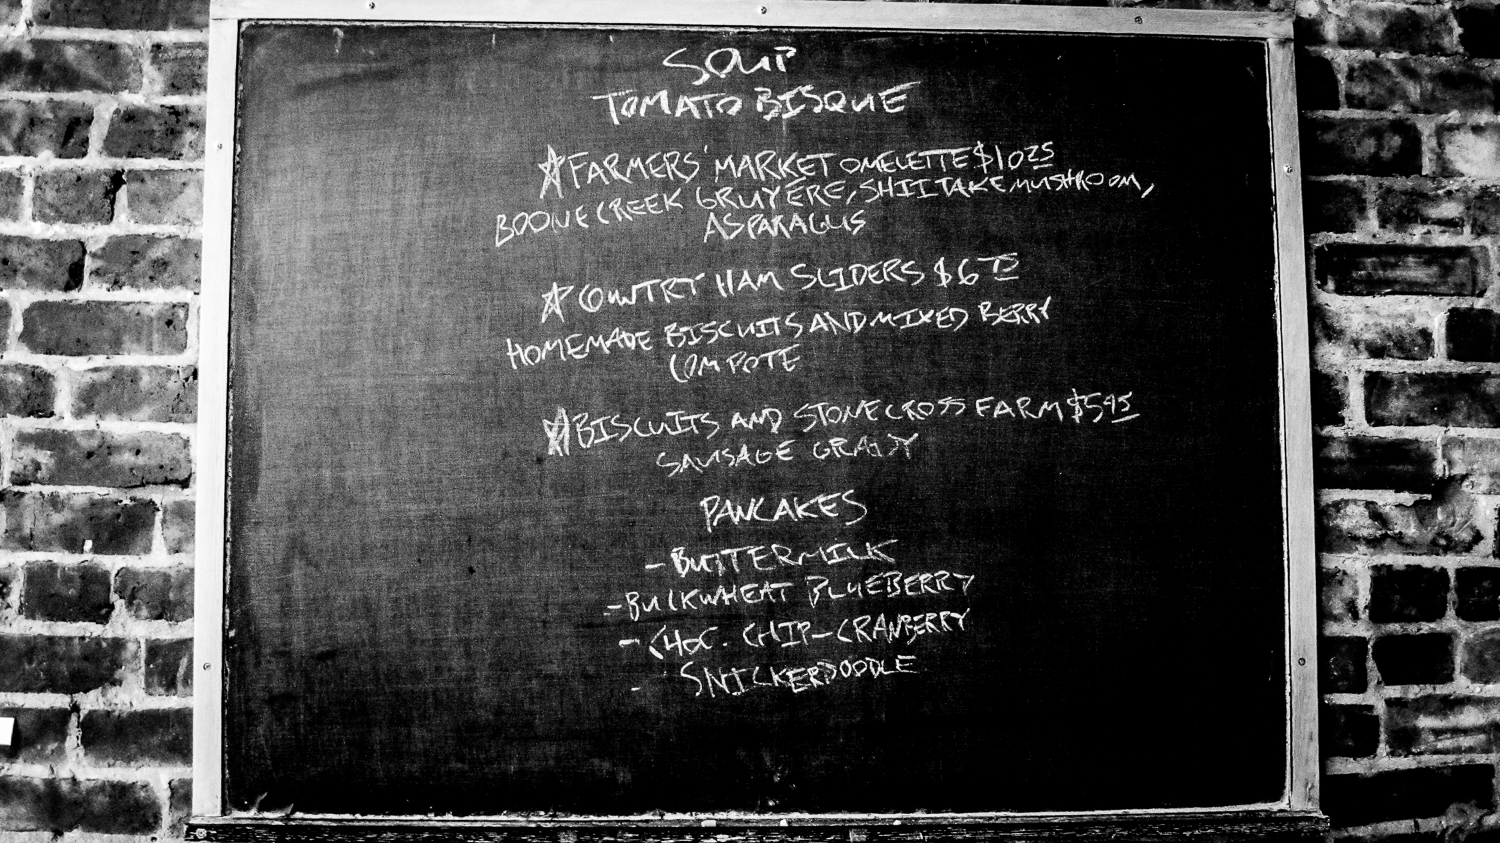 SOUP
TOMATO BISQUE
☆FARMERS' MARKET OMELETTE $10 25
BOONE CREEK GRUYERE, SHIITAKE MUSHROOM,
ASPARAGUS
☆COUNTRY HAM SLIDERS $6 75
HOMEMADE BISCUITS AND MIXED BERRY
COMPOTE
☆BISCUITS AND STONECROSS FARM $5 95
SAUSAGE GRAVY
PANCAKES
- BUTTERMILK
- BUCKWHEAT BLUEBERRY
- CHOC. CHIP-CRANBERRY
- SNICKERDOODLE